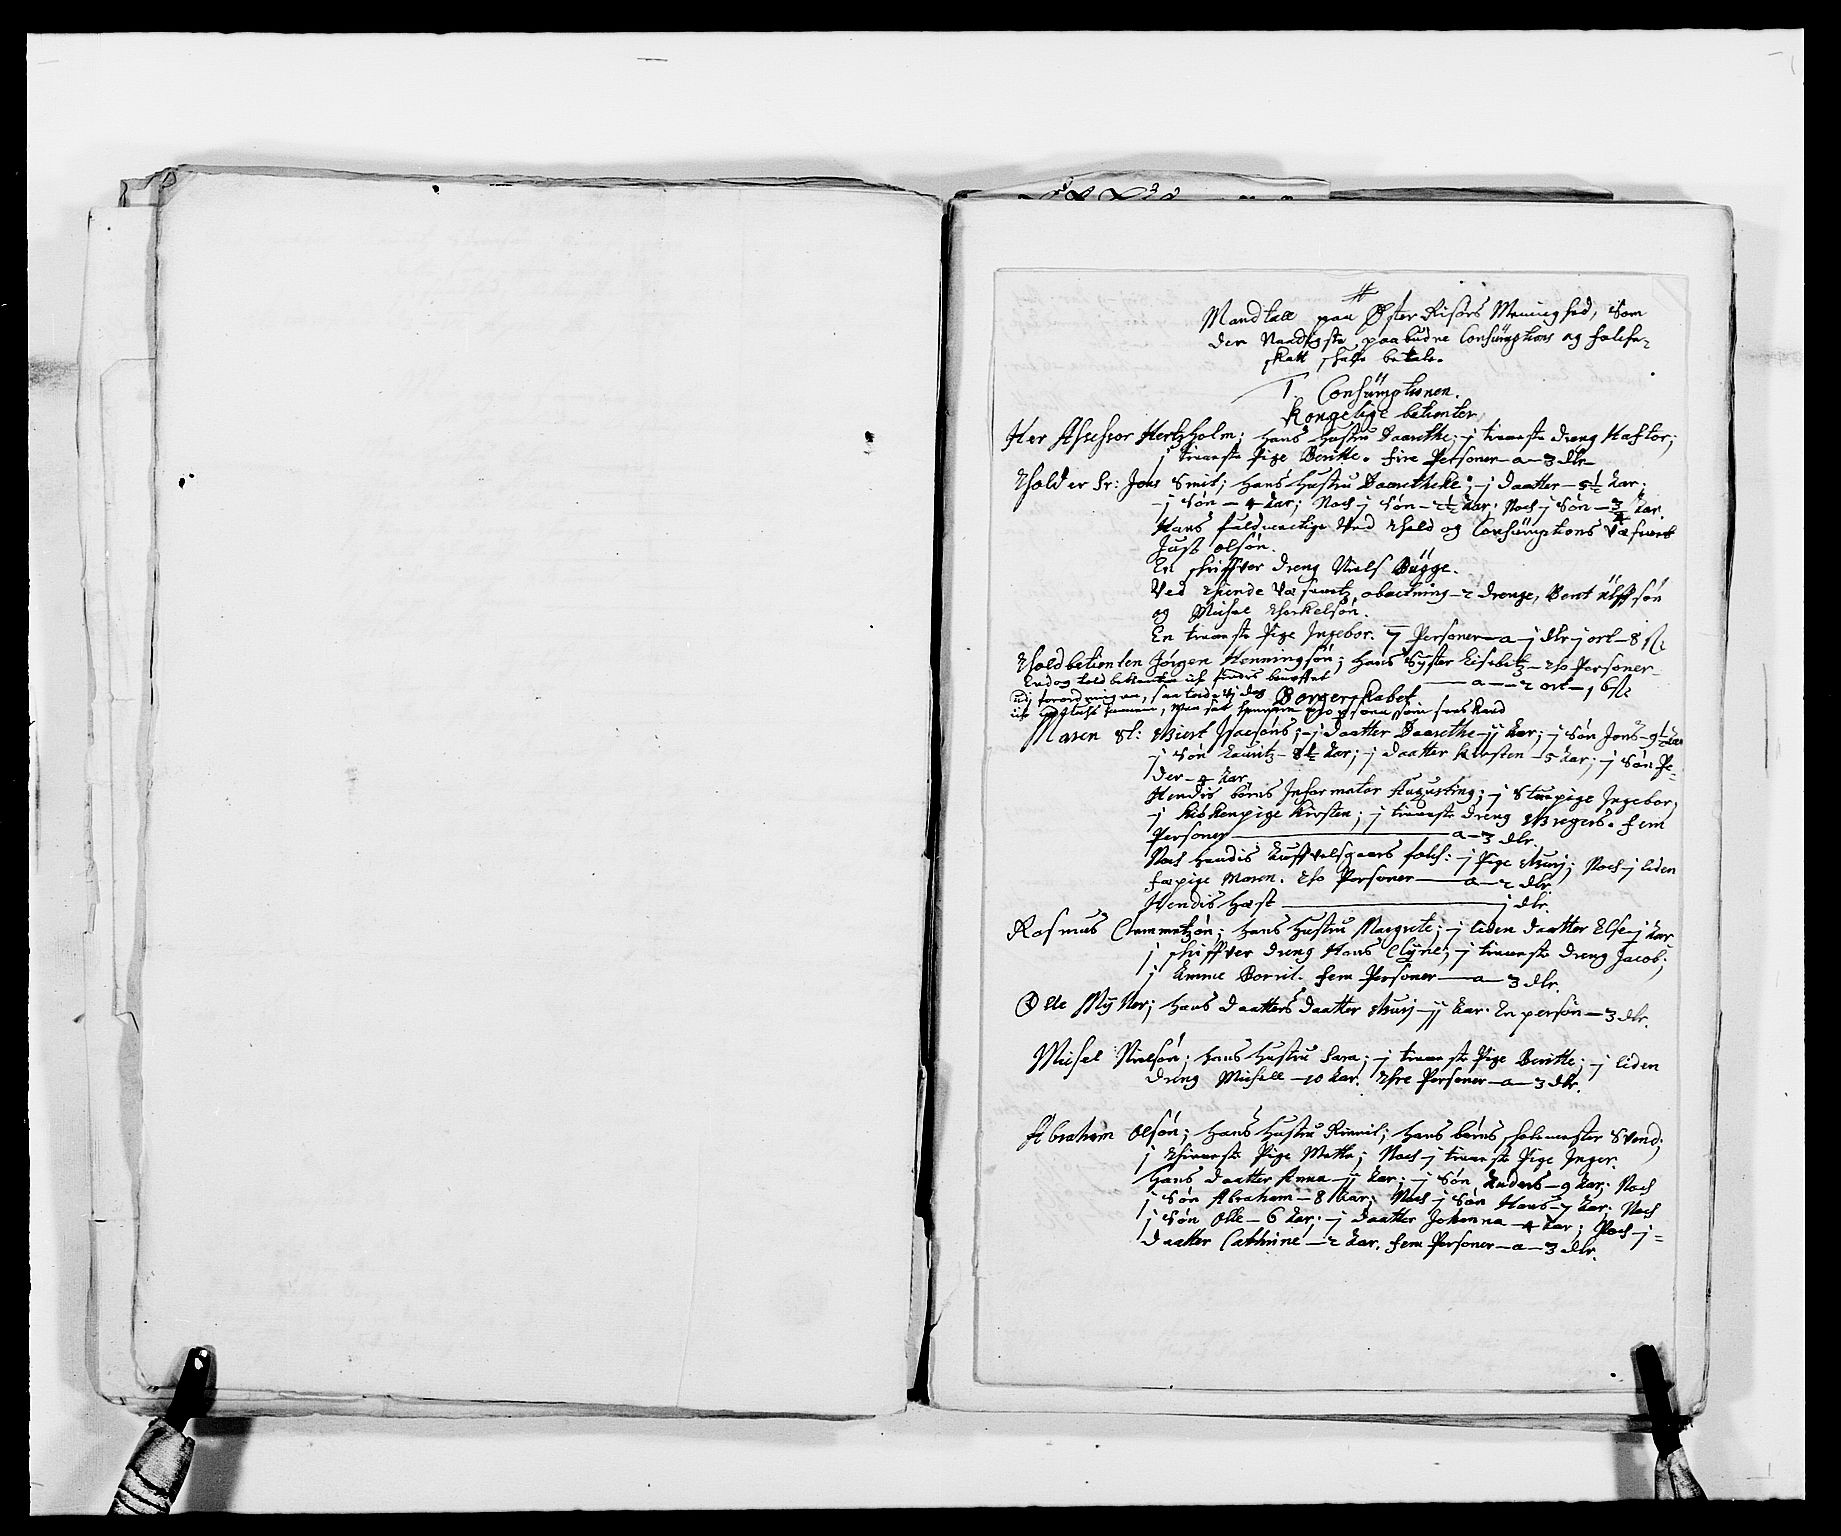 Mandtall paa Øster Risørs Meenighed, som
den Naadigste paabudne Consumptions og folche-
skatt skulle betale.
I Consumptionen.
Kongelige betienter
Her Assessor Hertzholm; hans Hustru Daarethe; j tieneste dreng Hector;
j tieneste Pige Beritte. fire Personer — a — 3 dlr
Tholder Sr: Jens Smit; hans Hustru Daaretheke; j daatter — 5½ aar;
j Søn — 4 aar; Noch j Søn — 2½ aar; Noch j Søn — ¾ aar.
Hans fuldmectige Ved Thold og Consumptions Væsenet
Just olsøn.
En schriffver dreng Niels Bügge.
Ved Tiende obactning — 2 drenge, Bent ülffsøn
og Michel Thorkelsøn.
En tieneste Pige Ingebor. 7 Personer — a — j dlr j ort — 8 sk
Tholdbetienten Jørgen Henningsøn; hans Syster Lisebetz — Tho Personer
— a — 2 ort — 16 sk
Borgerskabet
Maren Sl: Isacsøns; j daatter Daarethe — jj aar; j Søn Jens — 9½ aar
j Søn Lauritz — 8½ aar; j daatter Kirsten — 5 aar; j Søn Pe-
der — 4 aar
Hendis børns Informator Augusting; j Stuepige Ingebor,
j kiøkenpige Kirsten; j tieneste dreng Bregers. fem
Personer — a — 3 dlr.
Noch hendis folch: j Pige Murj; Noch j liden
Pige Maren. Tho Personer — a — 2 dlr
Hendis Hæst — j dlr.
Rasmus Clemmetzøn; hans Hustru Margrete; j liden daatter Else j aar
j schriffver dreng Hans Clyne; j tieneste dreng Jacob;
j Amme Borril. fem Personer — a — 3 dlr.
Olle Myhler; hans daatters daatter Murj — jj aar. En person — 3 dlr.
Michel Nielsøn; hans Hustru Sara; j tieneste Pige Beritte; j liden
dreng Michell — 10 aar. Thre Personer — a — 3 dlr.
Abraham Olsøn; hans Hustru; hans børns scholemester Svend;
j Thieneste Pige Mette; Noch j tieneste Pige Inger.
hans daatter Anna — jj aar; j Søn Anders — 9 aar; Noch
j Søn Abraham — 8 aar; Noch j Søn Hans — 7 aar; Noch
j Søn Olle — 6 aar; j daatter Johanna — 4 aar; Noch j
daatter Cathrine — 2 aar. fem Personer — a — 3 dlr.